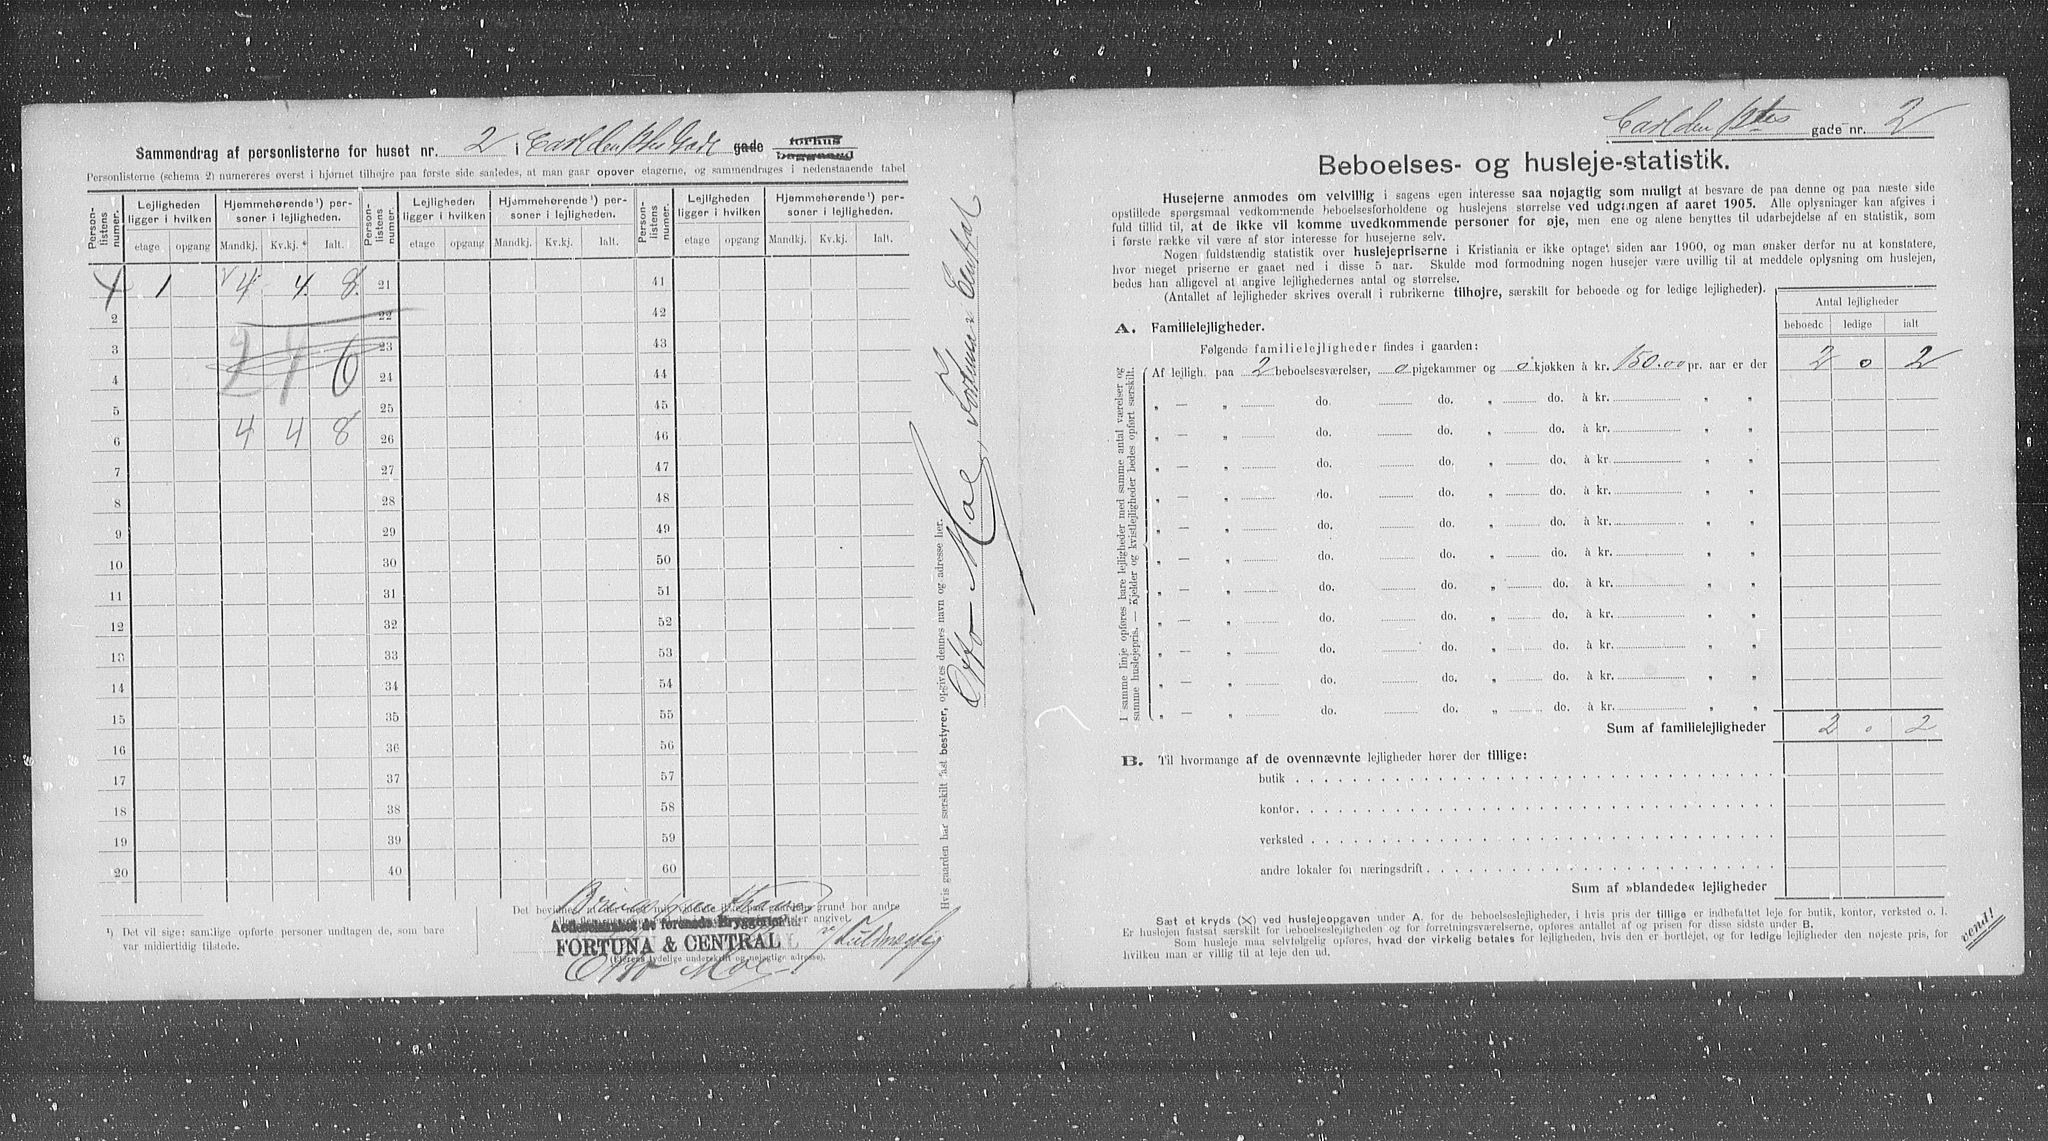 Sammendrag af personlisterne for huset nr. 2 i Carl den 12tes Gade gade forhus baggaard
Personlisterne (schema 2) numereres øverst i hjørnet tilhøjre paa første side saaledes, at man gaar opover etagerne, og sammendrages i nedenstaaende tabel
Person-listens nummer. Lejligheden ligger i hvilken Hjemmehørende¹) personer i lejligheden. Person-listens nummer. Lejligheden ligger i hvilken Hjemmehørende¹) personer i lejligheden. Person-listens nummer. Lejligheden ligger i hvilken Hjemmehørende¹) personer i lejligheden.
etage opgang Mandkj. Kv.kj. Ialt. etage opgang Mandkj. Kv.kj. Ialt. etage opgang Mandkj. Kv.kj. Ialt.
1 1 4 4 8 21 41
2 22 42
3 2 4 6 23 43
4 24 44
5 25 45
6 4 4 8 26 46
7 27 47
8 28 48
9 29 49
10 30 50
11 31 51
12 32 52
13 33 53
14 34 54
15 35 55
16 36 56
17 37 57
18 38 58
19 39 59
20 40 60
¹) Det vil sige: samtlige opførte personer undtagen de, som bare var midlertidig tilstede.
Det bevidnes
grund bor andre
er angivet.
Aktieselskabet de forenede Bryggerier
FORTUNA & CENTRAL
(Eierens tydelige underskrift og nøjagtige adresse).
Otto Moe
Hvis gaarden har særskilt fast bestyrer, opgives dennes navn og adresse her.
Otto Moe,
Carl den 12tes gade nr. 2
Beboelses- og husleje-statistik.
Husejerne anmodes om velvillig i sagens egen interesse saa nøjagtig som muligt at besvare de paa denne og paa næste side
opstillede spørgsmaal vedkommende beboelsesforholdene og huslejens størrelse ved udgangen af aaret 1905. Alle oplysninger kan afgives i
fuld tillid til, at de ikke vil komme uvedkommende personer for øje, men ene og alene benyttes til udarbejdelse af en statistik, som
i første række vil være af stor interesse for husejerne selv.
Nogen fuldstændig statistik over huslejepriserne i Kristiania er ikke optaget siden aar 1900, og man ønsker derfor nu at konstatere,
hvor meget priserne er gaaet ned i disse 5 aar. Skulde mod formodning nogen husejer være uvillig til at meddele oplysning om huslejen,
bedes han alligevel at angive lejlighedernes antal og størrelse.
(Antallet af lejligheder skrives overalt i rubrikerne tilhøjre, særskilt for beboede og for ledige lejligheder).
Antal lejligheder
beboede ledige ialt
A. Familielejligheder.
Følgende familielejligheder findes i gaarden:
Af lejligh. paa 2 beboelsesværelser, 0 pigekammer og 0 kjøkken à kr. 150.00 pr. aar er der 2 0 2
„ — „ do. do. „ do. à kr. „ „
„ — „ do. do. „ do. à kr. „ „
„ — „ do. do. „ do. à kr. „ „
„ — „ do. do. „ do. à kr. „ „
„ — „ do. do. „ do. à kr. „ „
„ — „ do. do. „ do. à kr. „ „
„ — „ do. do. „ do. à kr. „ „
„ — „ do. do. „ do. à kr. „ „
„ — „ do. do. „ do. à kr. „ „
„ — „ do. do. „ do. à kr. „ „
„ — „ do. do. „ do. à kr. „ „
I samme linje opføres bare lejligheder med samme antal værelser og
samme huslejepris. — Kjelder og kvistlejligheder bedes opført særskilt.
Sum af familielejligheder 2 0 2
B. Til hvormange af de ovennævnte lejligheder hører der tillige:
butik
kontor
verksted
andre lokaler for næringsdrift
Sum af »blandede« lejligheder
Sæt et kryds (X) ved huslejeopgaven under A. for de beboelseslejligheder, i hvis pris der tillige er indbefattet leje for butik, kontor, verksted o. l.
Er huslejen fastsat særskilt for beboelseslejligheden og for forretningsværelserne, opføres antallet af og prisen for disse sidste under B.
Som husleje maa selvfølgelig opføres, hvad der virkelig betales for lejligheden, hvis den er bortlejet, og for ledige lejligheder den nøjeste pris, for
hvilken man er villig til at leje den ud.
vend!